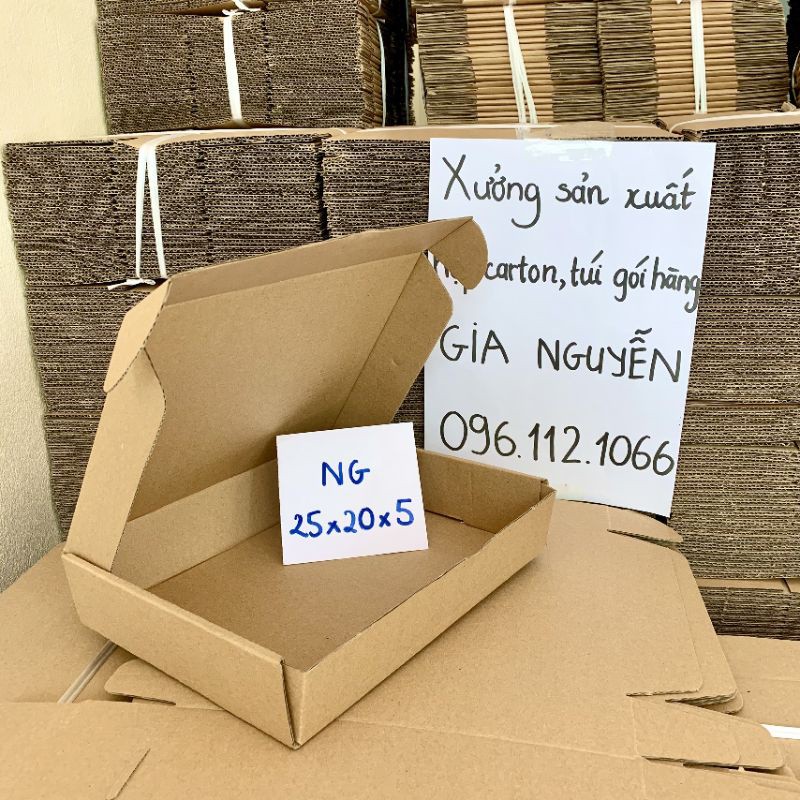 Xưởng sản xuất
carton, túi gói hàng
GIA NGUYỄN
096.112.1066
NG
25x20x5